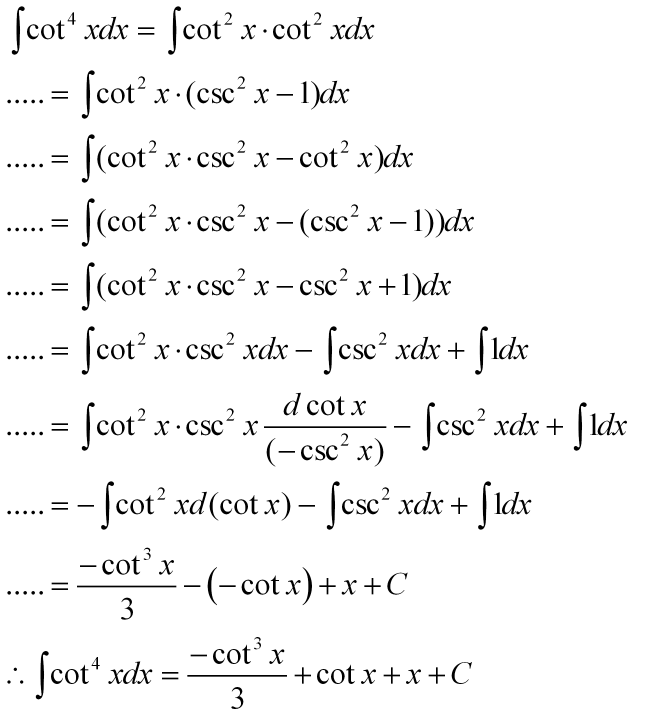 ∫cot⁴ xdx = ∫cot² x·cot² xdx
..... = ∫cot² x·(csc² x−1)dx
..... = ∫(cot² x·csc² x−cot² x)dx
..... = ∫(cot² x·csc² x−(csc² x−1))dx
..... = ∫(cot² x·csc² x−csc² x+1)dx
..... = ∫cot² x·csc² xdx − ∫csc² xdx + ∫1dx
..... = ∫cot² x·csc² x \frac{d cot x}{(−csc² x)} − ∫csc² xdx + ∫1dx
..... = −∫cot² xd(cot x) − ∫csc² xdx + ∫1dx
..... = \frac{−cot³ x}{3} −(−cot x)+x+C
∴ ∫cot⁴ xdx = \frac{−cot³ x}{3} +cot x+x+C